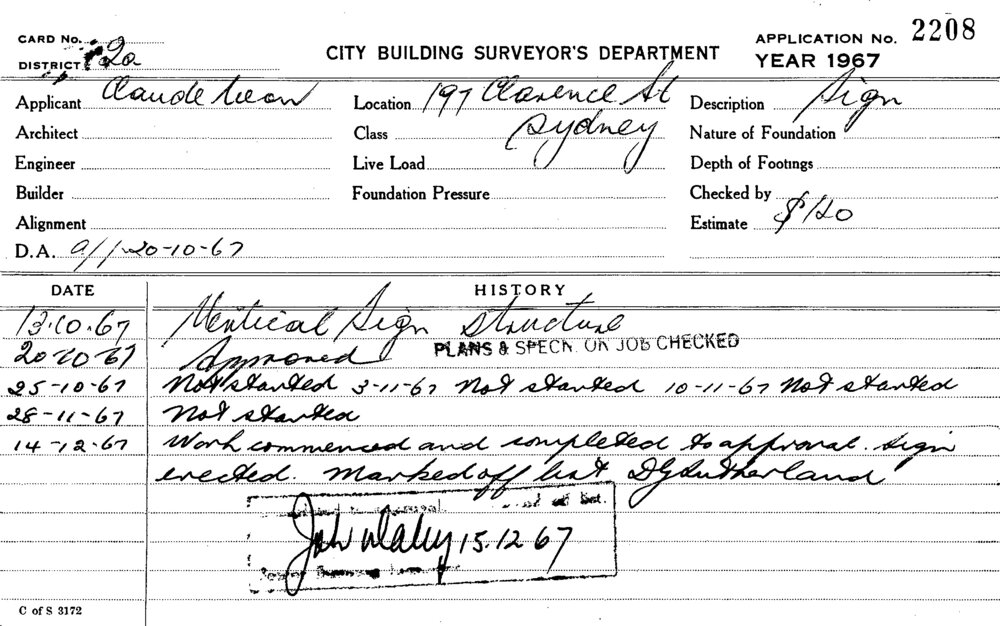 CARD No. 2a
DISTRICT
CITY BUILDING SURVEYOR'S DEPARTMENT
APPLICATION No. 2208
YEAR 1967
Applicant Claude Neon Location 197 Clarence St Description Sign
Architect Class Sydney Nature of Foundation
Engineer Live Load Depth of Footings
Builder Foundation Pressure Checked by
Alignment Estimate $120
D.A. 20-10-67
DATE HISTORY
13.10.67 Vertical Sign Structure
20-10-67 Approved PLANS & SPECN. ON JOB CHECKED
25-10-67 Not started 3-11-67 Not started 10-11-67 Not started
28-11-67 Not started
14-12-67 Work commenced and completed to approval. Sign
erected. Marked off list DGSutherland
15.12.67
C of S 3172